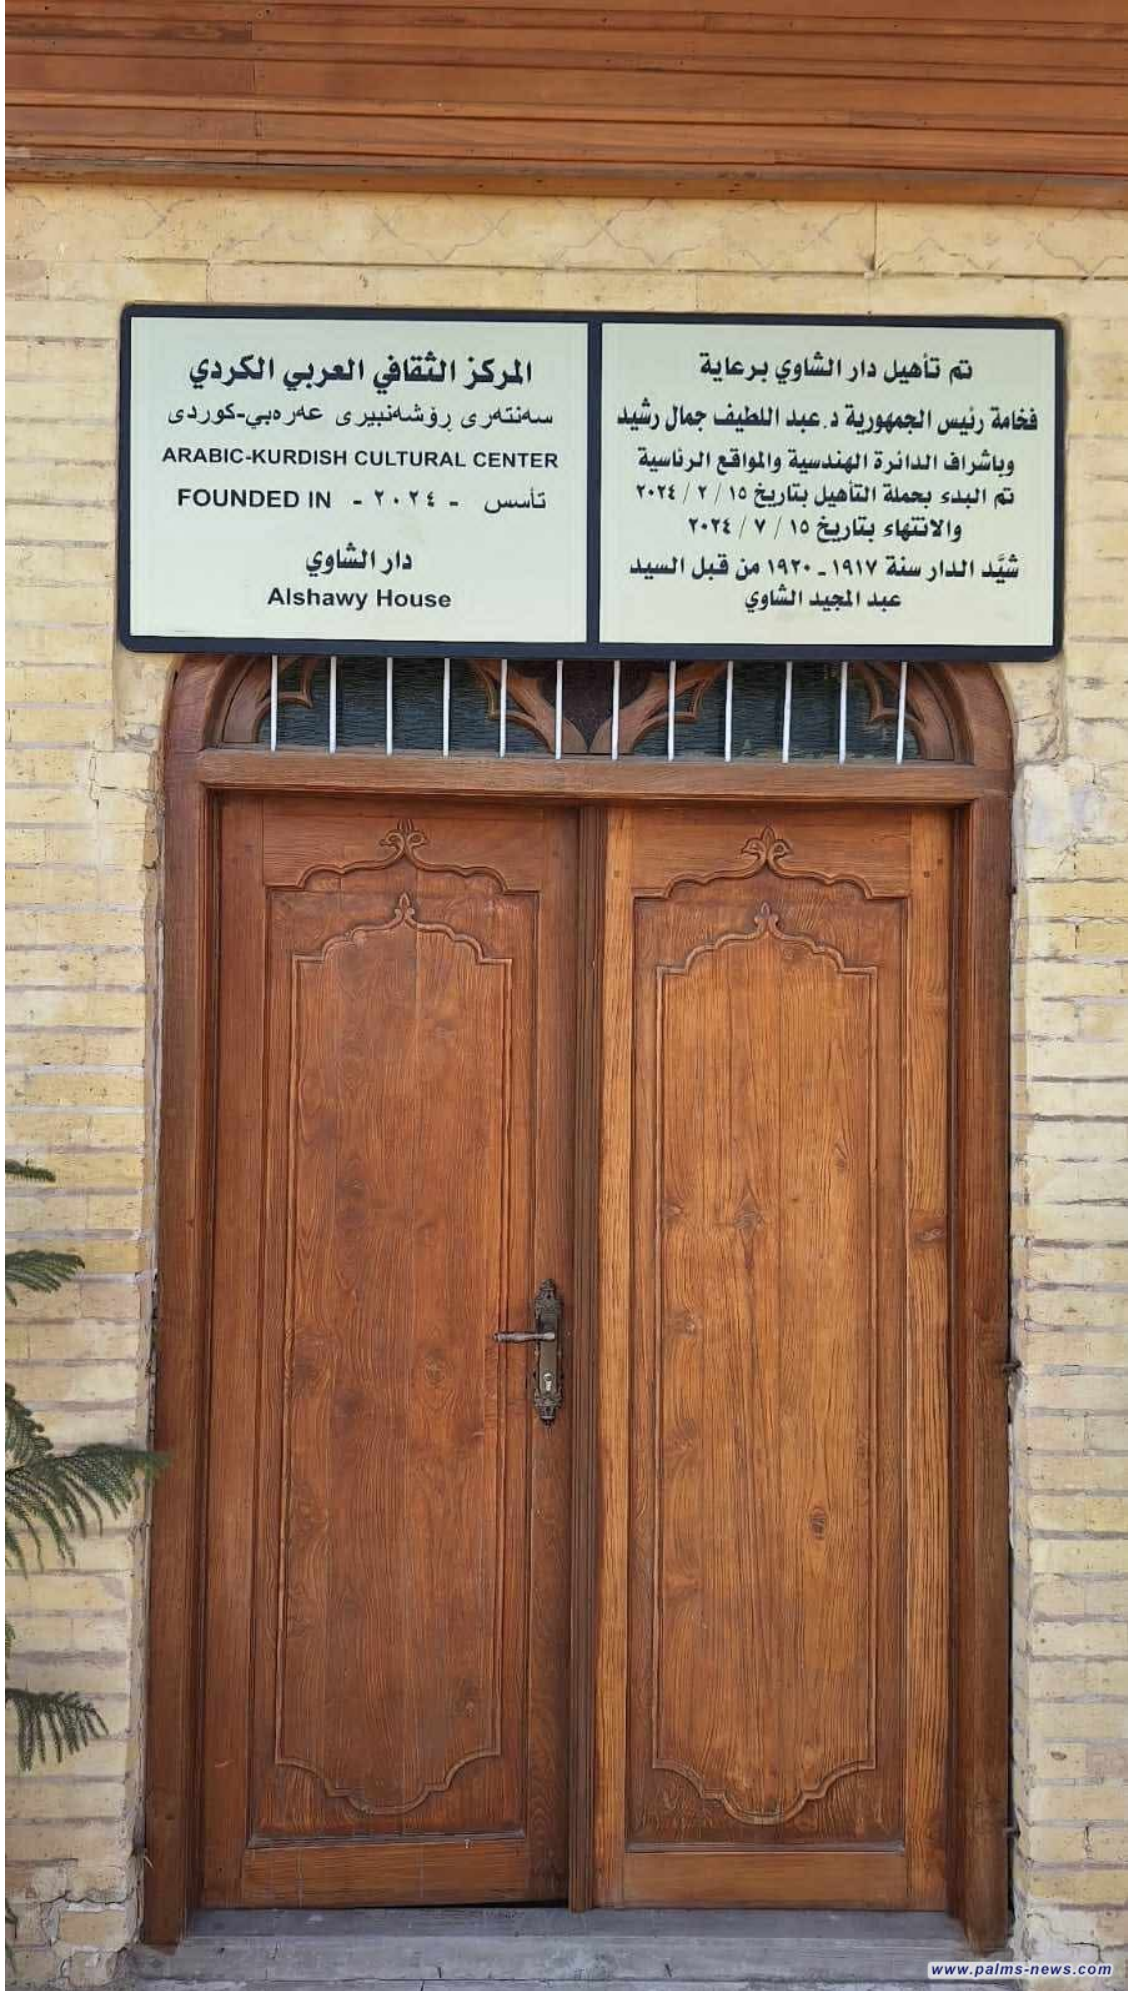 تم تأهيل دار الشاوي برعاية
فخامة رئيس الجمهورية د. عبد اللطيف جمال رشيد
وباشراف الدائرة الهندسية والمواقع الرئاسية
تم البدء بحملة التأهيل بتاريخ ١٥ / ٢ / ٢٠٢٤
والانتهاء بتاريخ ١٥ / ٧ / ٢٠٢٤
شيَّد الدار سنة ١٩١٧ ـ ١٩٢٠ من قبل السيد
عبد المجيد الشاوي
المركز الثقافي العربي الكردي
سەنتەری ڕۆشەنبیری عەرەبي-کوردی
ARABIC-KURDISH CULTURAL CENTER
FOUNDED IN - ٢٠٢٤ - تأسس
دار الشاوي
Alshawy House
www.palms-news.com